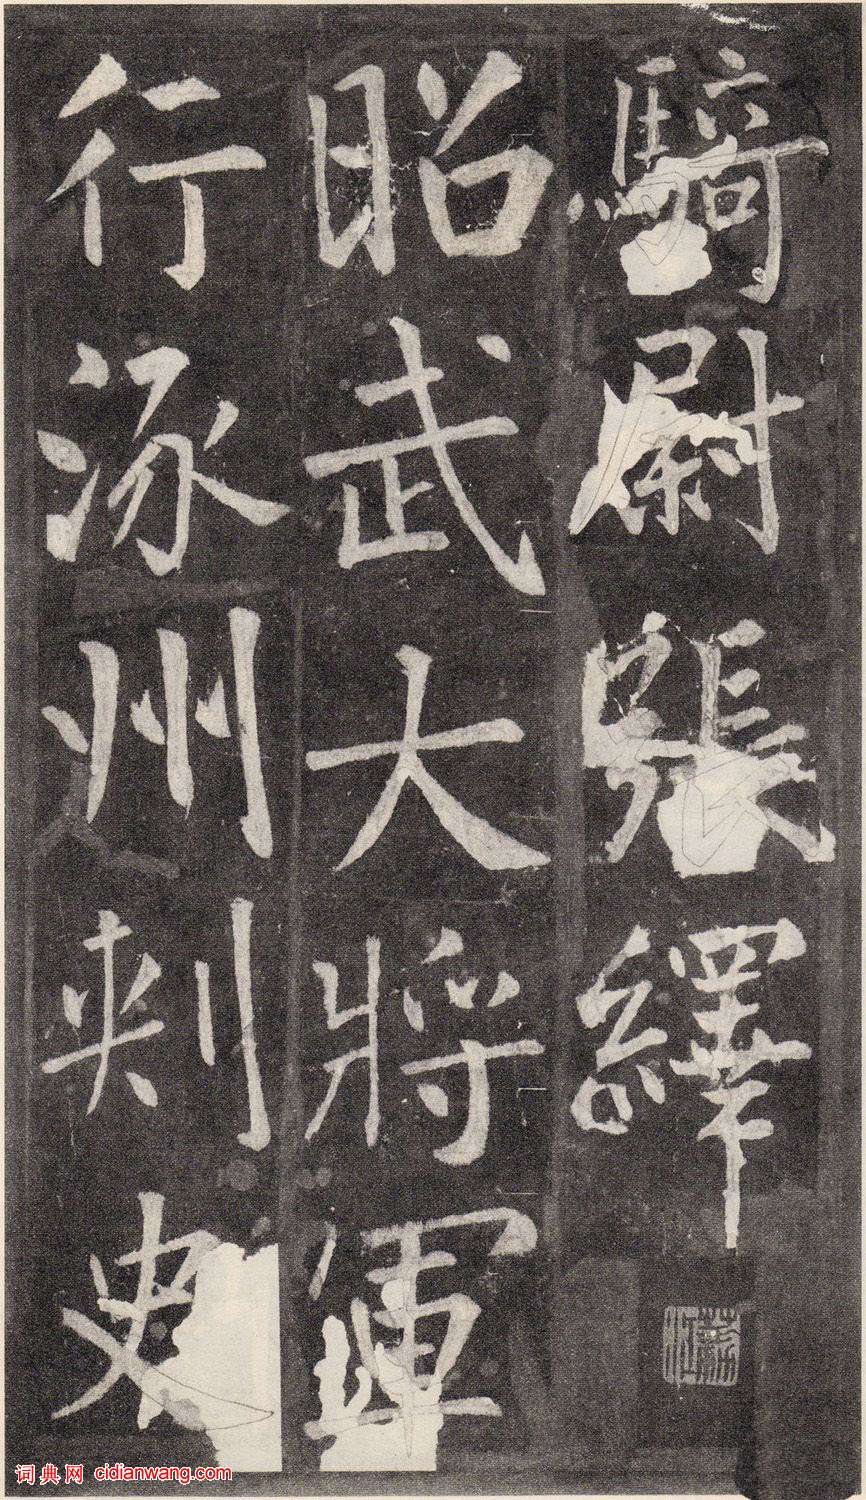 騎尉張繹
昭武大將軍
行涿州刾史
词典网 cidianwang.com